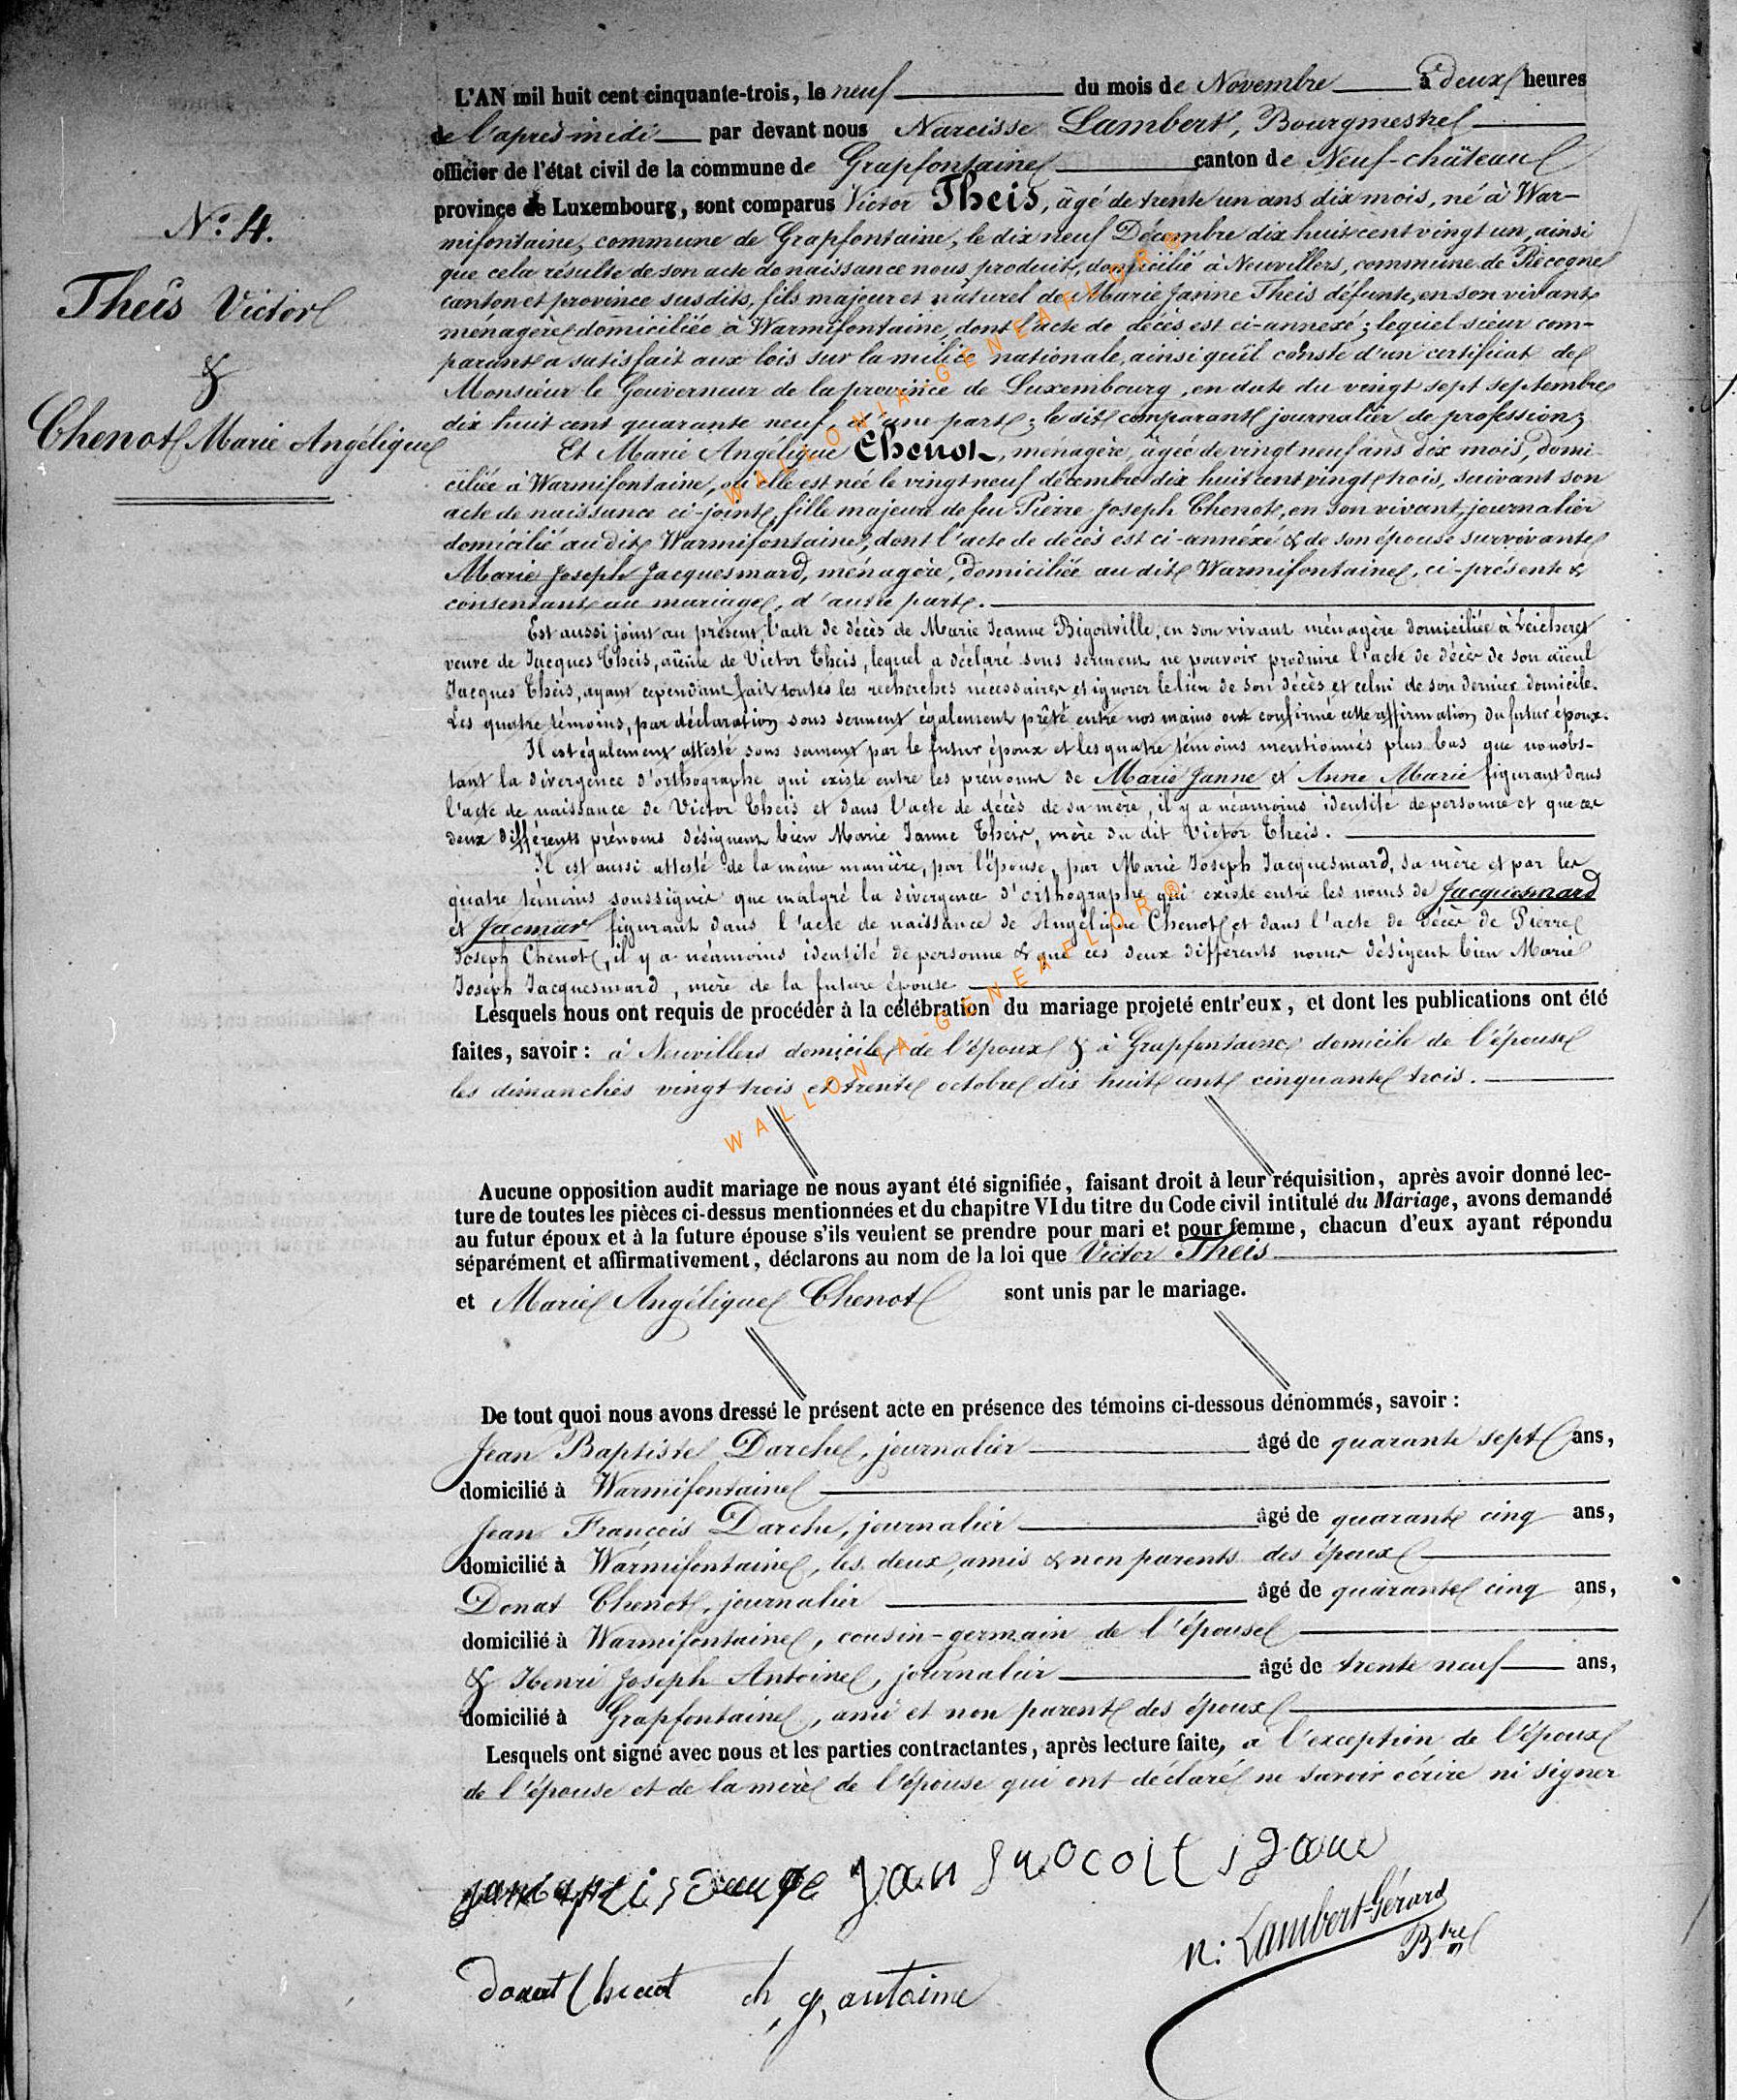 N.° 4.
Theis Victor
&
Chenot Marie Angélique
L'AN mil huit cent cinquante-trois, le neuf du mois de Novembre à deux heures
de l'après-midi par devant nous Narcisse Lambert, Bourgmestre
officier de l'état civil de la commune de Grapfontaine canton de Neuf-château
province de Luxembourg, sont comparus Victor Theis, âgé de trente un ans dix mois, né à War-
mifontaine, commune de Grapfontaine, le dix neuf Décembre dix huit cent vingt un, ainsi
que cela résulte de son acte de naissance nous produit, domicilié à Neuvillers, commune de Recogne
canton et province susdits, fils majeur et naturel de Marie Janne Theis défunte, en son vivant
ménagère domiciliée à Warmifontaine, dont l'acte de décès est ci-annexé; lequel sieur com-
parant a satisfait aux lois sur la milice nationale, ainsi qu'il conste d'un certificat de
Monsieur le Gouverneur de la province de Luxembourg, en date du vingt sept septembre
dix huit cent quarante neuf, d'une part; le dit comparant journalier de profession;
Et Marie Angélique Chenot, ménagère, âgée de vingt neuf ans dix mois, domi-
ciliée à Warmifontaine, où elle est née le vingt neuf décembre dix huit cent vingt trois, suivant son
acte de naissance ci-joint, fille majeure de feu Pierre Joseph Chenot, en son vivant, journalier
domicilié au dit Warmifontaine, dont l'acte de décès est ci-annéxé & de son épouse survivante
Marie Joseph Jacquesmard, ménagère, domiciliée au dit Warmifontaine, ci-présente &
consentant au mariage, d'autre part.
Est aussi joint au présent, l'acte de décès de Marie Jeanne Bigonville, en son vivant ménagère domiciliée à Leicheret
veuve de Jacques Theis, aïeule de Victor Theis, lequel a déclaré sous serment ne pouvoir produire l'acte de décès de son aïeul
Jacques Theis, ayant cependant fait toutes les recherches nécessaires et ignorer le lieu de son décès et celui de son dernier domicile.
Les quatre témoins, par déclaration sous serment également prêté entre nos mains ont confirmé cette affirmation du futur époux.
Il est également attesté sous serment par le futur époux et les quatre témoins mentionnés plus bas que nonobs-
tant la divergence d'orthographe qui existe entre les prénoms de Marie Janne et Anne Marie figurant dans
l'acte de naissance de Victor Theis et dans l'acte de décès de sa mère, il y a néamoins identité de personne et que ces
deux différents prénoms désignent bien Marie Janne Theis, mère du dit Victor Theis.
Il est aussi attesté de la même manière, par l'épouse, par Marie Joseph Jacquesmard, sa mère et par les
quatre témoins soussignés que malgré la divergence d'orthographe qui existe entre les noms de Jacquesmard
et Jacmar figurant dans l'acte de naissance de Angélique Chenot, et dans l'acte de décès de Pierre
Joseph Chenot, il y a néamoins identité de personne & que ces deux différents noms désigent bien Marie
Joseph Jacquesmard, mère de la future épouse
Lesquels nous ont requis de procéder à la célébration du mariage projeté entr'eux, et dont les publications ont été
faites, savoir: à Neuvillers domicile de l'époux & à Grapfontaine domicile de l'épouse
les dimanches vingt trois et trente octobre dix huit cent cinquante trois.
Aucune opposition audit mariage ne nous ayant été signifiée, faisant droit à leur réquisition, après avoir donné lec-
ture de toutes les pièces ci-dessus mentionnées et du chapitre VI du titre du Code civil intitulé du Mariage, avons demandé
au futur époux et à la future épouse s'ils veulent se prendre pour mari et pour femme, chacun d'eux ayant répondu
séparément et affirmativement, déclarons au nom de la loi que Victor Theis
et Marie Angélique Chenot sont unis par le mariage.
De tout quoi nous avons dressé le présent acte en présence des témoins ci-dessous dénommés, savoir:
Jean Baptiste Darche, journalier âgé de quarante sept ans,
domicilié à Warmifontaine
Jean François Darche, journalier âgé de quarante cinq ans,
domicilié à Warmifontaine, les deux, amis & non parents des époux
Donat Chenot, journalier âgé de quarante cinq ans,
domicilié à Warmifontaine, cousin-germain de l'épouse
& Henri Joseph Antoine, journalier âgé de trente neuf ans,
domicilié à Grapfontaine, ami et non parent des époux
Lesquels ont signé avec nous et les parties contractantes, après lecture faite, à l'exception de l'époux
de l'épouse et de la mère de l'épouse qui ont déclaré ne savoir écrire ni signer
N: Lambert-Gérard
Btre
donat Chenot h, j, antoine
WALLONIA-GENEAFLOR®
WALLONIA-GENEAFLOR®